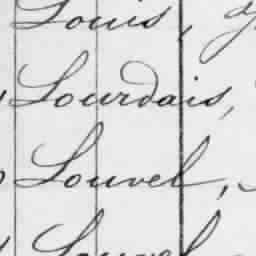 Louis,
Lourdais,
Louvel,
Louvel